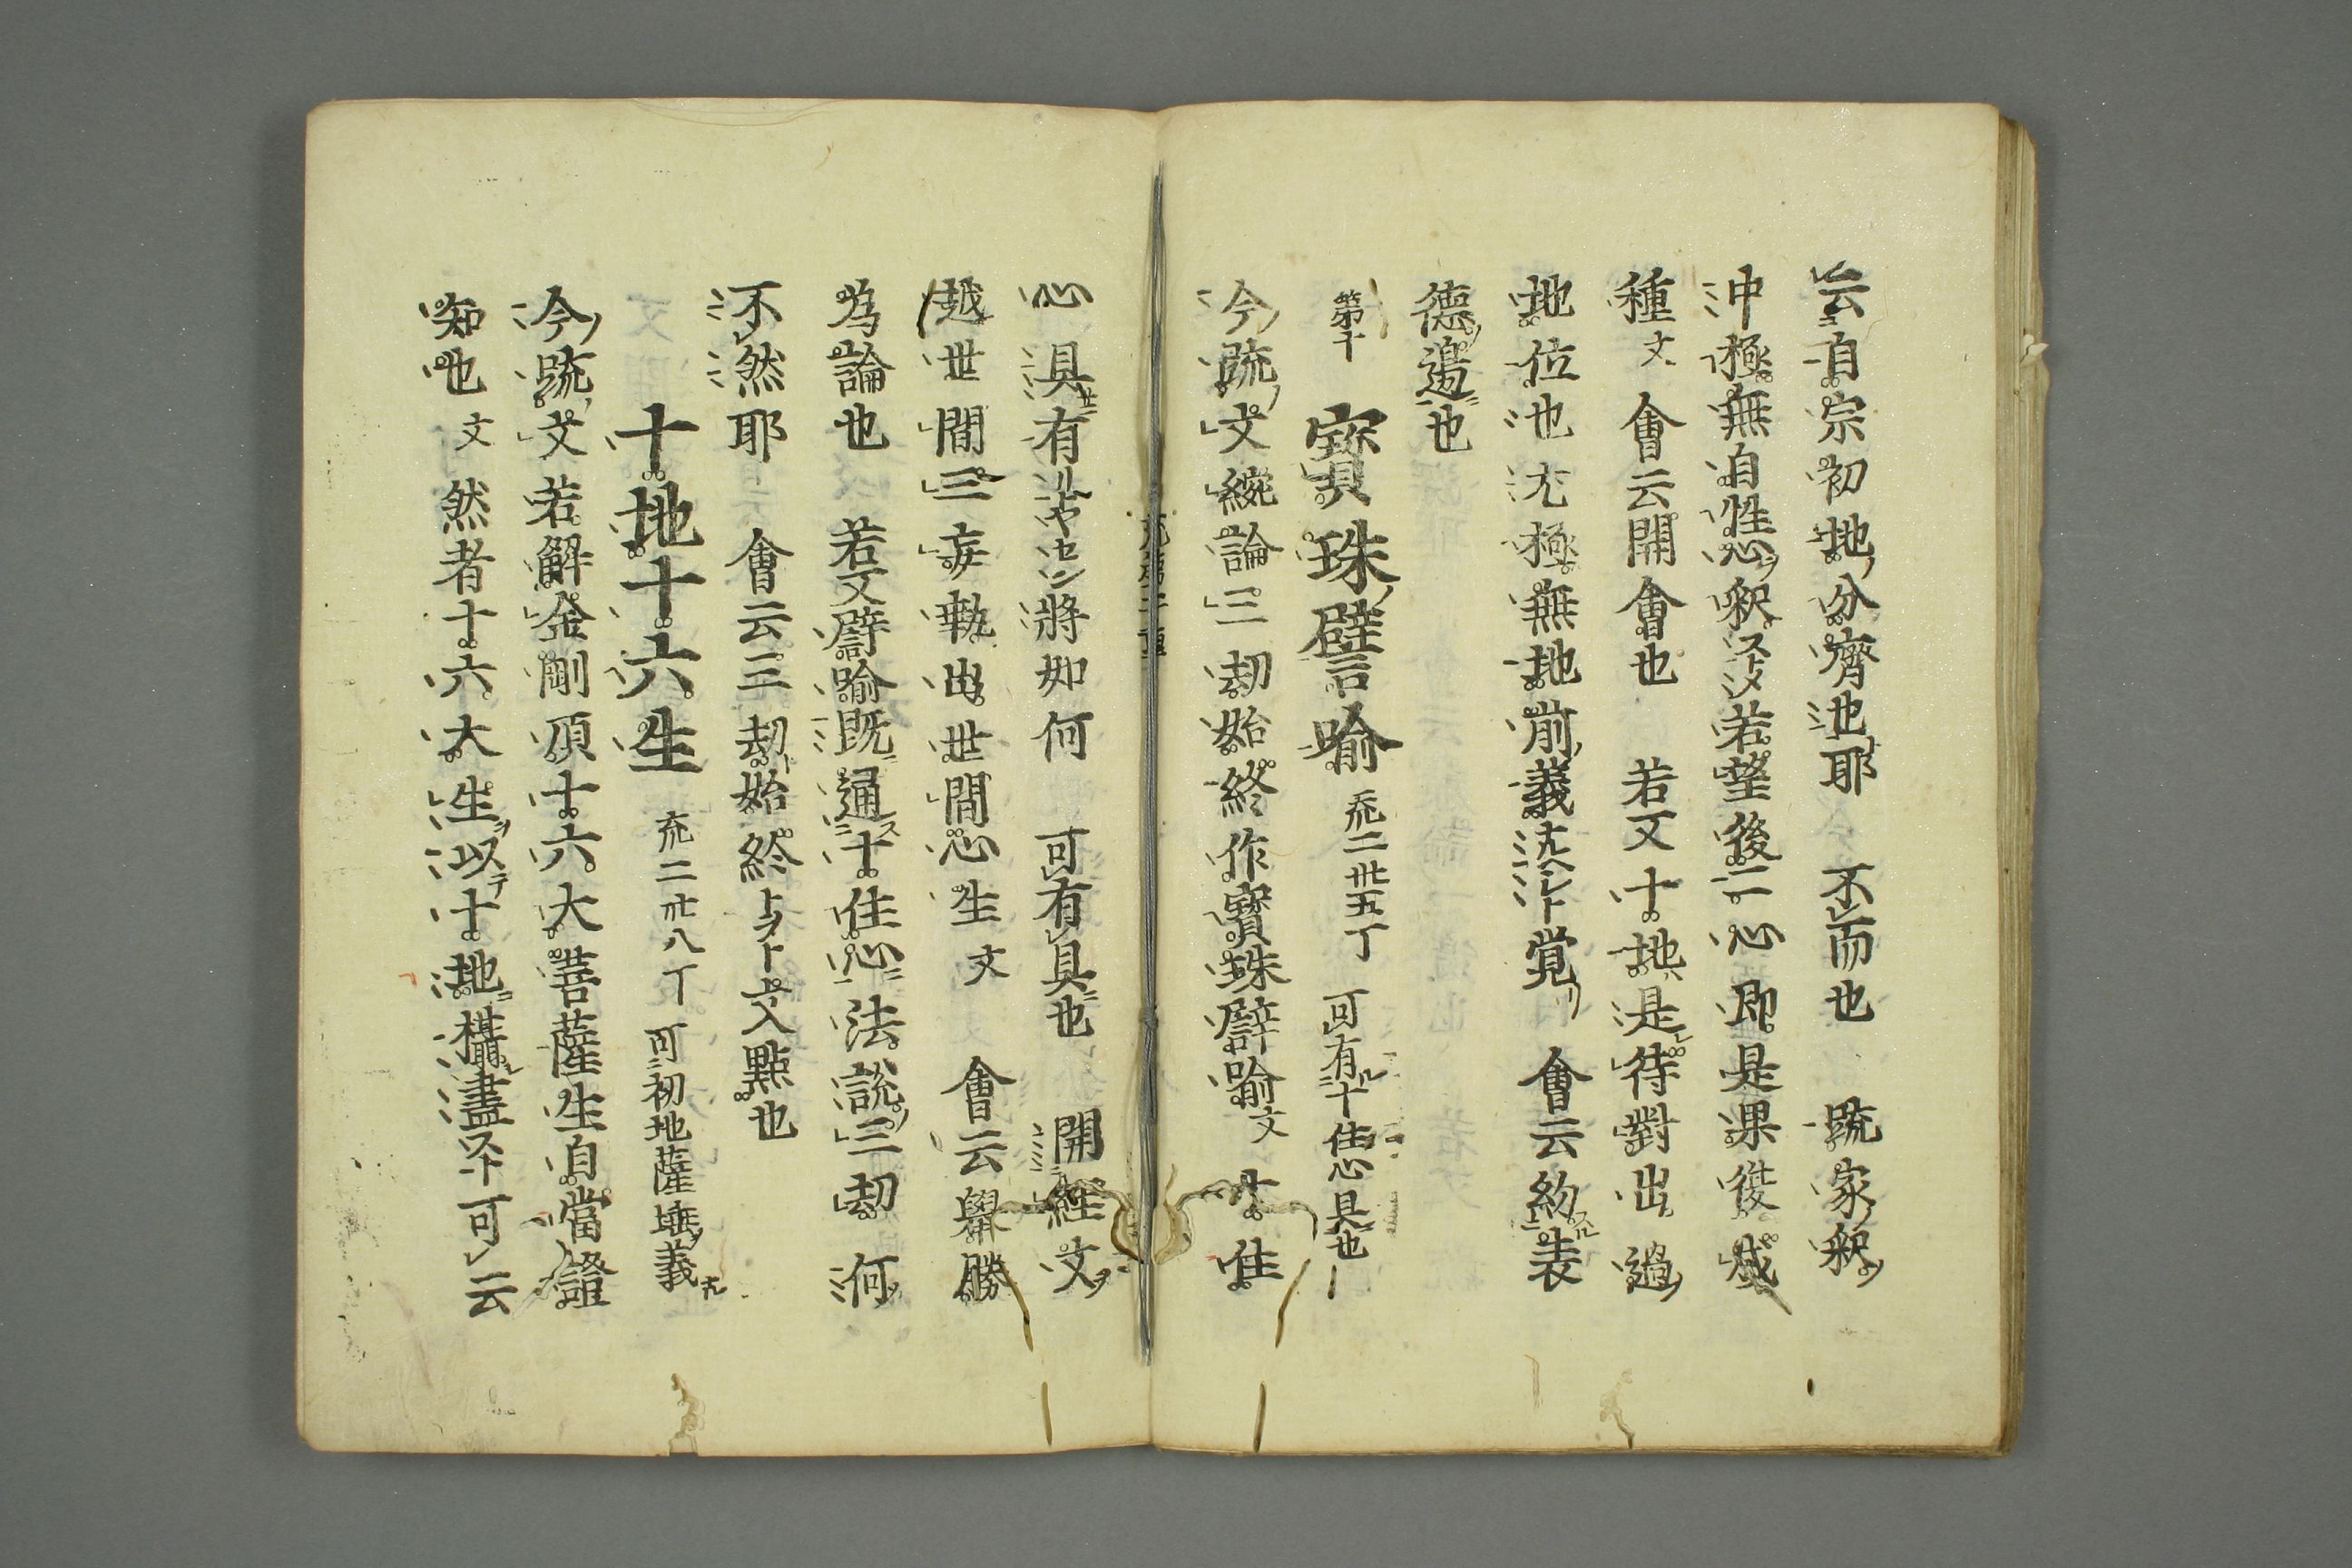 云自宗初地分齊也耶 不而也 䟽家釈
冲極無自性心釈 若望後二心即是果後成
種文 會云開會也 若又十地是待對出過
地位也 尤極無地前義 覚 會云約表
德邉也
第十 寳珠譬喻 二卅五丁 可有十住心具也
今䟽文綩論三劫始終作寳珠譬喻文 十住
心具有ルヤセン將如何 可有具也 開経文
越世間三妄執出世間心生文 會云擧勝
為論也 若又譬喻既通十住心法説三劫何
不然耶 會云三劫始終 点入點也
十地十六生 二卅八丁 可初地薩埵義
今䟽文若解金剛頂十六大菩薩生自當證
知也文 然者十六大生以テ十地攝盡 可云